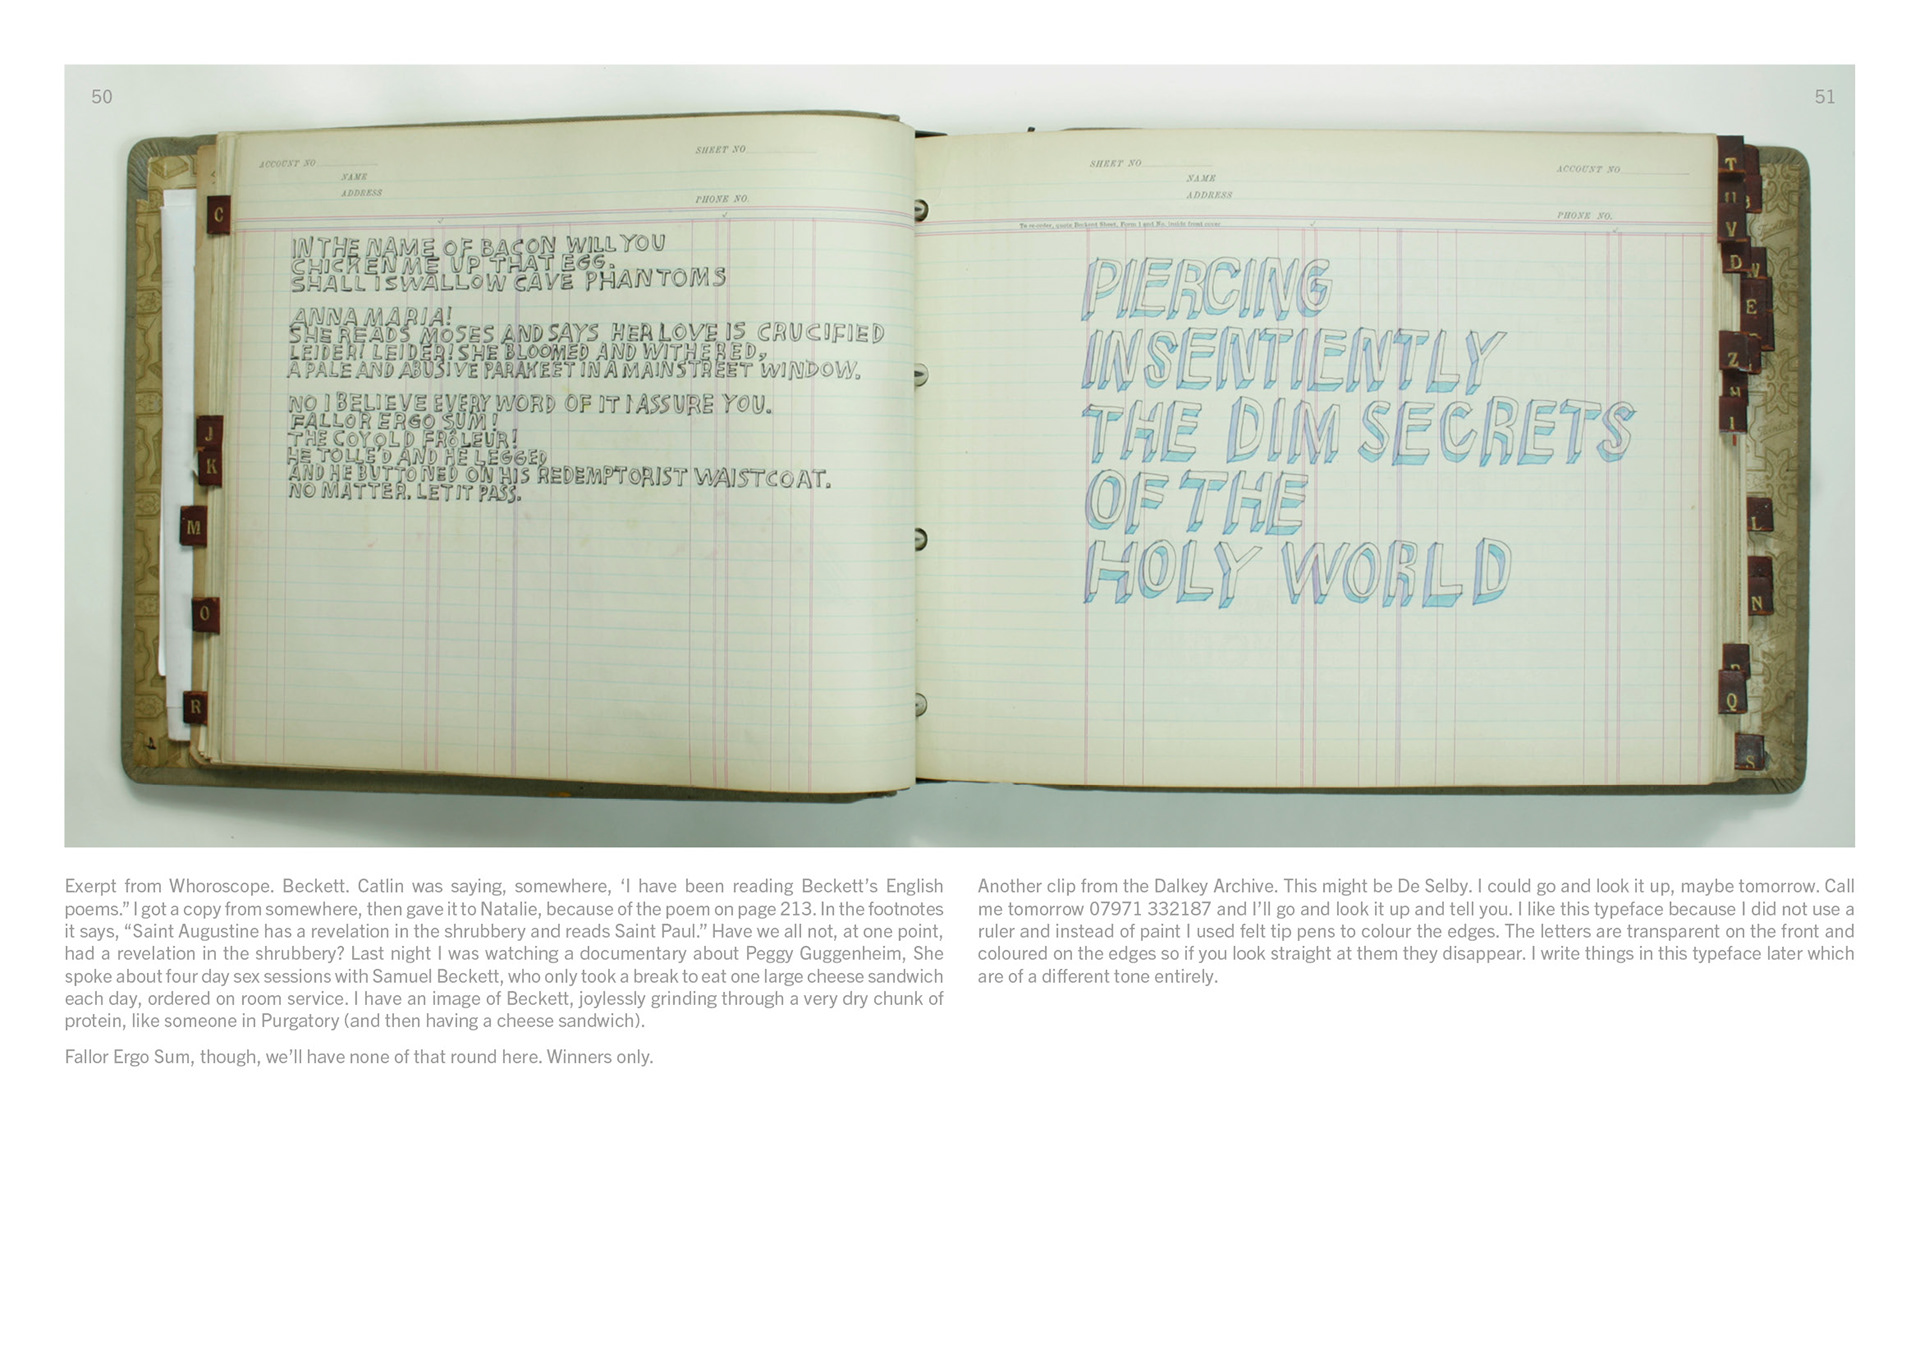 50
51
ACCOUNT NO
SHEET NO
NAME
ADDRESS
PHONE NO.
C
J
K
M
O
R
IN THE NAME OF BACON WILL YOU
CHICKEN ME UP THAT EGG.
SHALL I SWALLOW CAVE PHANTOMS
ANNA MARIA!
SHE READS MOSES AND SAYS HER LOVE IS CRUCIFIED
LEIDER! LEIDER! SHE BLOOMED AND WITHERED,
A PALE AND ABUSIVE PARAKEET IN A MAINSTREET WINDOW.
NO I BELIEVE EVERY WORD OF IT I ASSURE YOU.
FALLOR ERGO SUM!
THE COY OLD FRÔLEUR!
HE TOLLE'D AND HE LEGGED
AND HE BUTTONED ON HIS REDEMPTORIST WAISTCOAT.
NO MATTER. LET IT PASS.
SHEET NO
ACCOUNT NO
NAME
ADDRESS
PHONE NO.
To re-order, quote Beckout Sheet, Form 1 and No. inside front cover
PIERCING
INSENTIENTLY
THE DIM SECRETS
OF THE
HOLY WORLD
T
U
V
D
E
Z
I
L
N
Q
S
Exerpt from Whoroscope. Beckett. Catlin was saying, somewhere, ‘I have been reading Beckett’s English
poems.” I got a copy from somewhere, then gave it to Natalie, because of the poem on page 213. In the footnotes
it says, “Saint Augustine has a revelation in the shrubbery and reads Saint Paul.” Have we all not, at one point,
had a revelation in the shrubbery? Last night I was watching a documentary about Peggy Guggenheim, She
spoke about four day sex sessions with Samuel Beckett, who only took a break to eat one large cheese sandwich
each day, ordered on room service. I have an image of Beckett, joylessly grinding through a very dry chunk of
protein, like someone in Purgatory (and then having a cheese sandwich).
Fallor Ergo Sum, though, we’ll have none of that round here. Winners only.
Another clip from the Dalkey Archive. This might be De Selby. I could go and look it up, maybe tomorrow. Call
me tomorrow 07971 332187 and I’ll go and look it up and tell you. I like this typeface because I did not use a
ruler and instead of paint I used felt tip pens to colour the edges. The letters are transparent on the front and
coloured on the edges so if you look straight at them they disappear. I write things in this typeface later which
are of a different tone entirely.